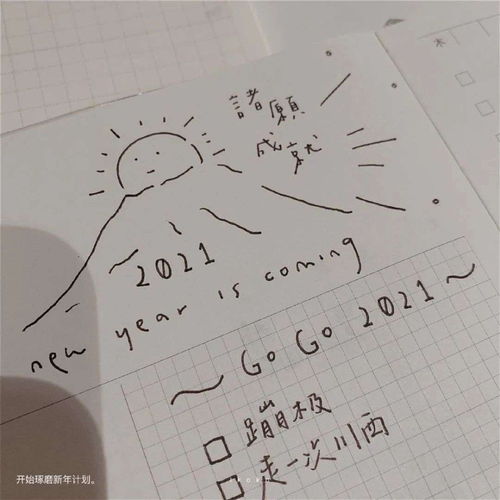 諸願
成就
~2021
new year is coming
~ GO GO 2021 ~
蹦极
走一次川西
木
开始琢磨新年计划。